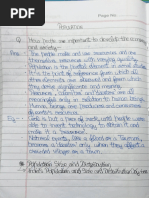 Page No.
Population
Q. How people are important to develop the economy
and society-
Ans The people make and use resources and are
themselves resources with varying quality.
Population is the pivotal element in social studies.
It is the point of reference from which all
other elements are observed and from
which they derive significance and
meaning. Resources, calamities and disasters are all
meaningful only in relation to human beings.
Human beings are producers and consumers of
earth's resources.
Eg- Coal is but a piece of rock, until people were
able to invent technology to obtain it and
make it a resource.
Natural events, like a flood or a Tsunami,
becomes a disaster only when they affect a
crowded village or a town.
Population Size and Distribution
India's Population Size and Distribution by